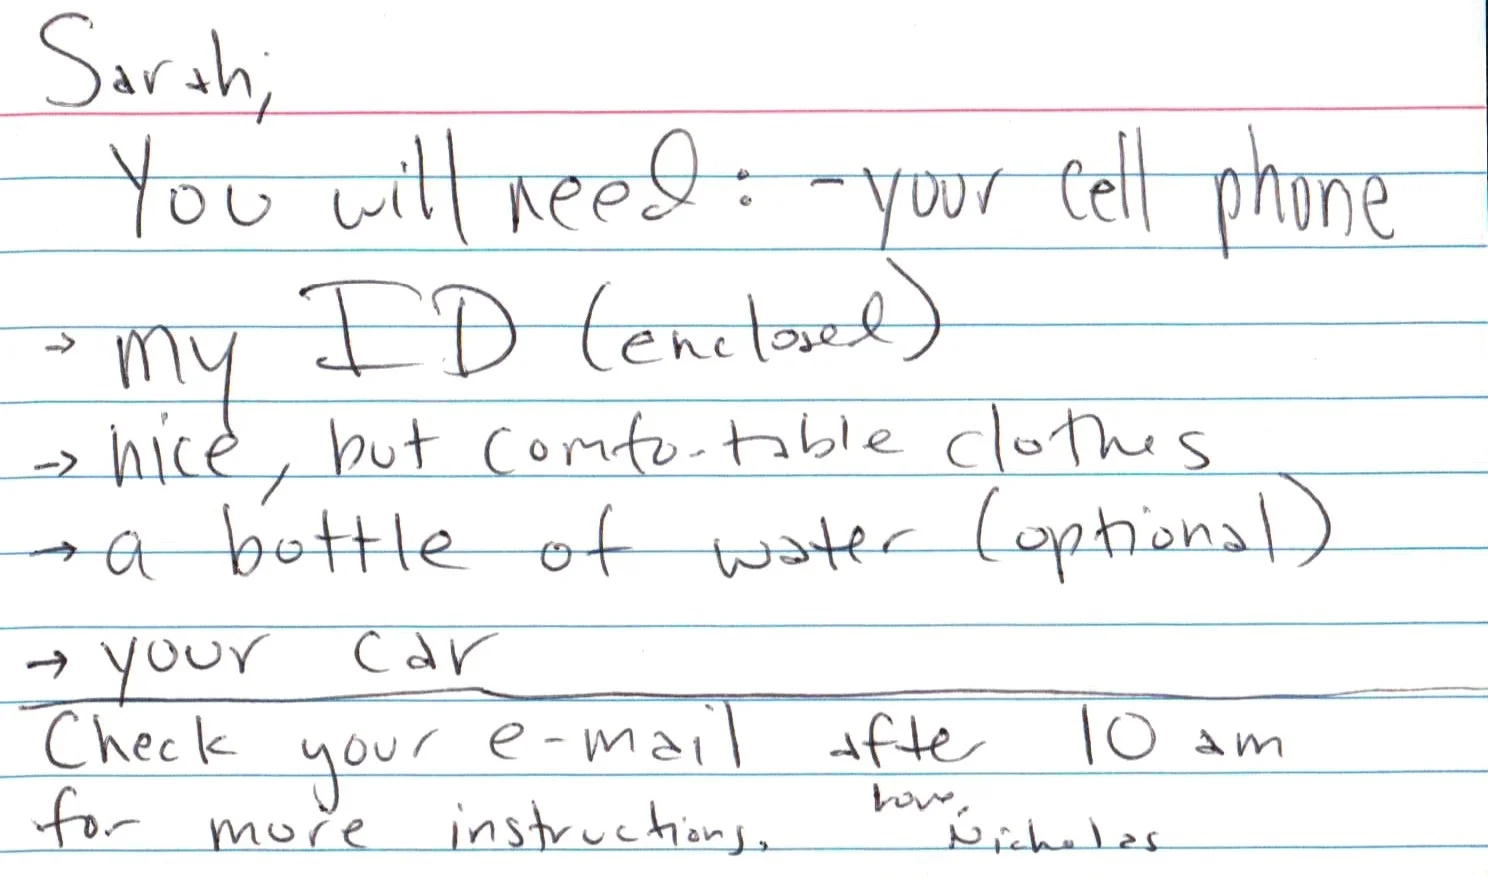 Sarah,
You will need: - your cell phone
→ my ID (enclosed)
→ nice, but comfortable clothes
→ a bottle of water (optional)
→ your car
Check your e-mail after 10 am
for more instructions. Love,
Nicholas